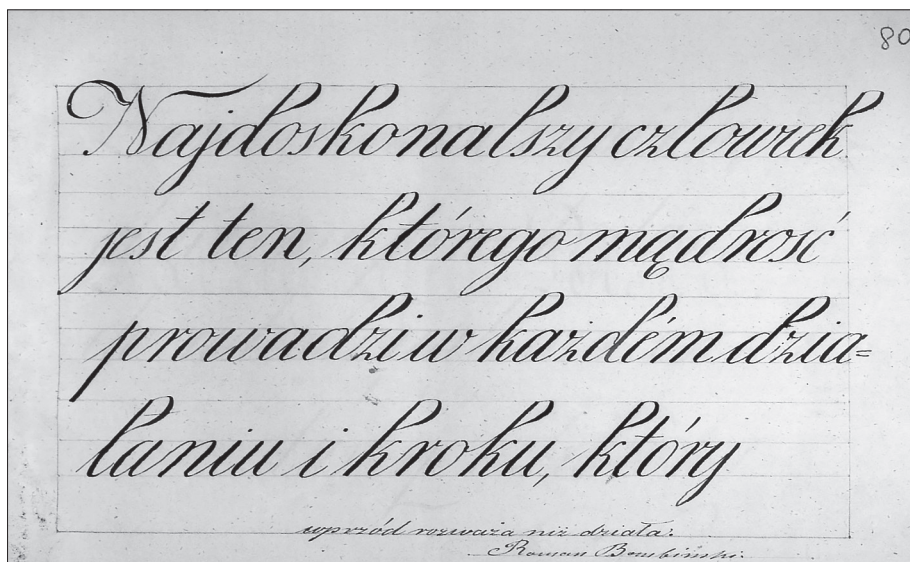 80
Najdoskonalszy człowiek
jest ten, którego mądrość
prowadzi w każdém dzia=
łaniu i kroku, który
wprzód rozważa niż działa.
Roman